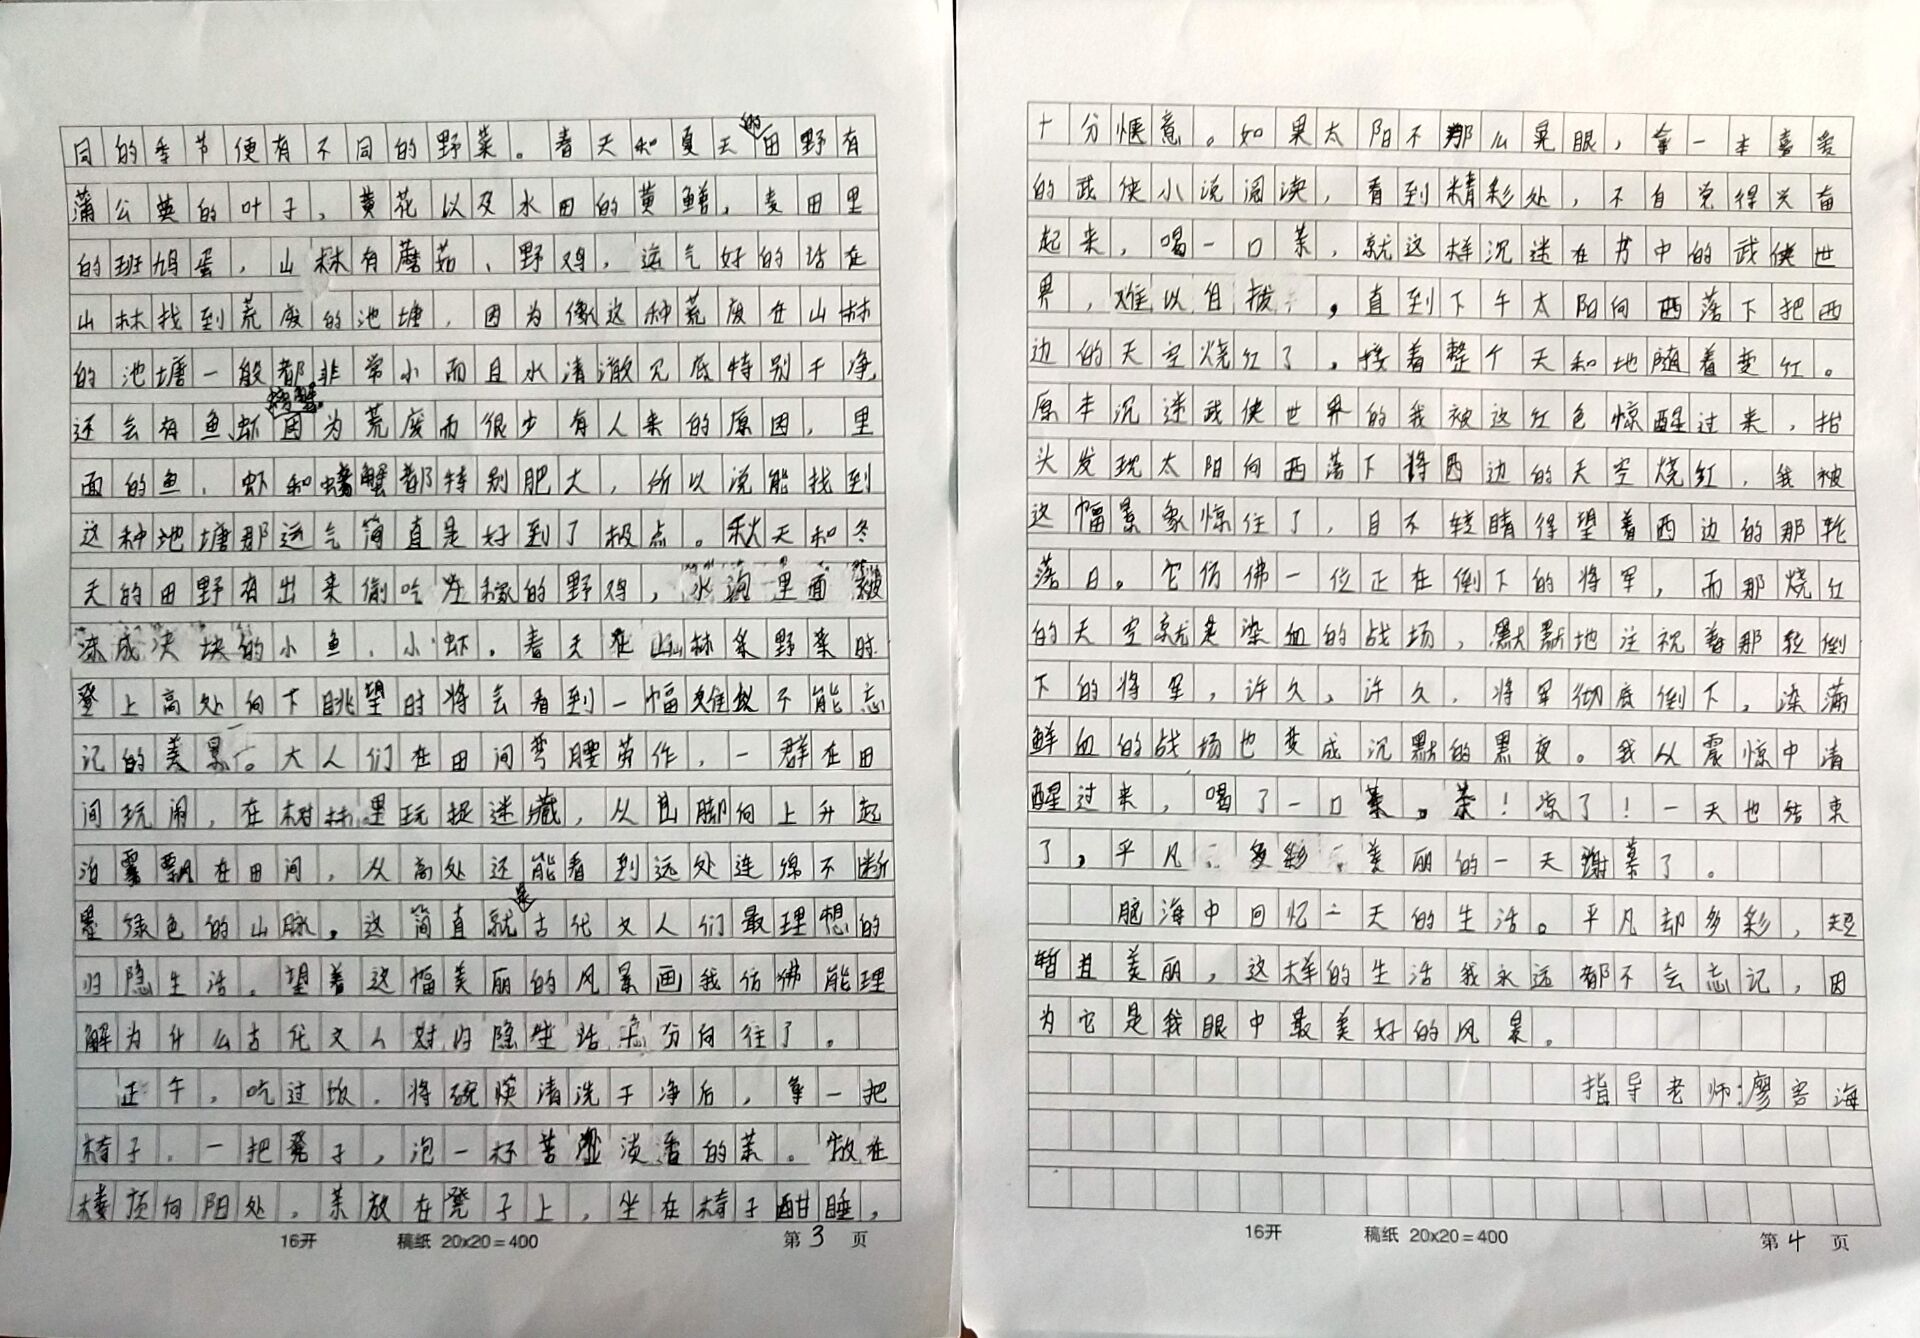 同的季节便有不同的野菜。春天和夏天的田野有
蒲公英的叶子，黄花以及水田的黄鳝，麦田里
的班鸠蛋，山林有蘑菇、野鸡，运气好的话在
山林找到荒废的池塘，因为像这种荒废在山林
的池塘一般都非常小而且水清澈见底特别干净,
还会有鱼、虾、螃蟹。因为荒废而很少有人来的原因，里
面的鱼、虾和螃蟹都特别肥大，所以说能找到
这种池塘那运气简直是好到了极点。秋天和冬
天的田野有出来偷吃庄稼的野鸡，水沟里面被
冻成块的小鱼、小虾。春天在山林采野菜时
登上高处向下眺望时将会看到一幅难以不能忘
记的美景。大人们在田间弯腰劳作，一群在田
间玩闹，在树林里玩捉迷藏，从山脚向上升起
白雾飘在田间，从高处还能看到远处连绵不断
墨绿色的山脉。这简直就是古代文人们最理想的
归隐生活。望着这幅美丽的风景画我仿佛能理
解为什么古代文人对归隐生活充分向往了。
正午，吃过饭，将碗筷清洗干净后，拿一把
椅子。一把凳子，泡一杯苦涩淡香的茶。放在
楼顶向阳处，茶放在凳子上，坐在椅子酣睡，
16开 稿纸 20x20=400 第3页
十分惬意。如果太阳不那么晃眼，拿一本喜爱
的武侠小说阅读，看到精彩处，不自觉得兴奋
起来，喝一口茶，就这样沉迷在书中的武侠世
界，难以自拔，直到下午太阳向西落下把西
边的天空烧红了，接着整个天和地随着变红。
原本沉迷武侠世界的我被这红色惊醒过来，抬
头发现太阳向西落下将西边的天空烧红，我被
这幅景象惊住了，目不转睛得望着西边的那轮
落日。它仿佛一位正在倒下的将军，而那烧红
的天空就是染血的战场，默默地注视着那轮倒
下的将军，许久，许久，将军彻底倒下，染满
鲜血的战场也变成沉默的黑夜。我从震惊中清
醒过来，喝了一口茶。茶！凉了！一天也结束
了，平凡多彩美丽的一天谢幕了。
脑海中回忆一天的生活。平凡却多彩，短
暂且美丽，这样的生活我永远都不会忘记，因
为它是我眼中最美好的风景。
指导老师：廖容海
16开 稿纸 20x20=400 第4页